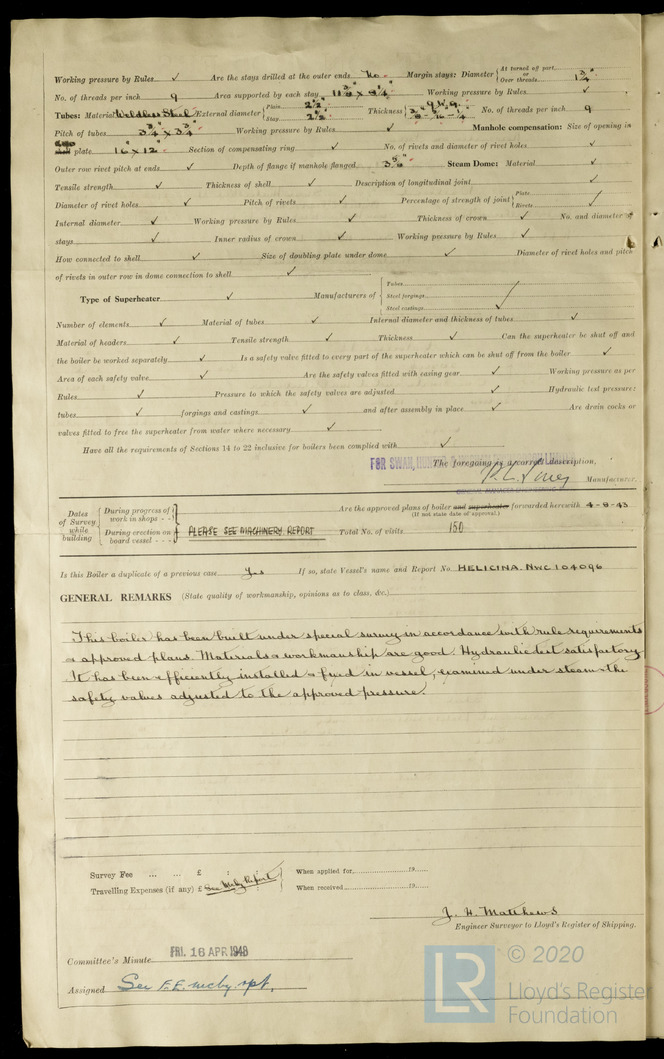 Working pressure by Rules ✓ Are the stays drilled at the outer ends No. Margin stays: Diameter { At turned off part, or Over threads 1 3/4"
No. of threads per inch 9 Area supported by each stay Working pressure by Rules ✓
Tubes: Material Weldless Steel External diameter { Plain 2 1/2" Stay 2 1/2" Thickness { 9 W.G. No. of threads per inch 9
Pitch of tubes 3 3/4" x 3 3/4" Working pressure by Rules ✓ Manhole compensation: Size of opening in
end plate 16" x 12" Section of compensating ring ✓ No. of rivets and diameter of rivet holes ✓
Outer row rivet pitch at ends ✓ Depth of flange if manhole flanged Steam Dome: Material ✓
Tensile strength ✓ Thickness of shell ✓ Description of longitudinal joint ✓
Diameter of rivet holes ✓ Pitch of rivets ✓ Percentage of strength of joint { Plate Rivets ✓
Internal diameter ✓ Working pressure by Rules ✓ Thickness of crown ✓ No. and diameter of
stays ✓ Inner radius of crown ✓ Working pressure by Rules ✓
How connected to shell ✓ Size of doubling plate under dome ✓ Diameter of rivet holes and pitch
of rivets in outer row in dome connection to shell ✓
Type of Superheater ✓ Manufacturers of { Tubes Steel forgings Steel castings ✓
Number of elements ✓ Material of tubes ✓ Internal diameter and thickness of tubes ✓
Material of headers ✓ Tensile strength ✓ Thickness ✓ Can the superheater be shut off and
the boiler be worked separately ✓ Is a safety valve fitted to every part of the superheater which can be shut off from the boiler ✓
Area of each safety valve ✓ Are the safety valves fitted with easing gear ✓ Working pressure as per
Rules ✓ Pressure to which the safety valves are adjusted ✓ Hydraulic test pressure:
tubes ✓ forgings and castings ✓ and after assembly in place ✓ Are drain cocks or
valves fitted to free the superheater from water where necessary ✓
Have all the requirements of Sections 14 to 22 inclusive for boilers been complied with ✓
FOR SWAN, HUNTER &
The foregoing is a correct description,
Manufacturer.
Dates of Survey while building { During progress of work in shops - - During erection on board vessel - - - } PLEASE SEE MACHINERY REPORT
Are the approved plans of boiler and superheater forwarded herewith 4-8-43
(If not state date of approval.)
Total No. of visits 150
Is this Boiler a duplicate of a previous case Yes If so, state Vessel's name and Report No. HELICINA. NWC 104096
GENERAL REMARKS (State quality of workmanship, opinions as to class, &c.)
This boiler has been built under special survey in accordance with rule requirements
& approved plans. Materials & workmanship are good. Hydraulic test satisfactory.
It has been efficiently installed & fixed in vessel, examined under steam & the
safety valves adjusted to the approved pressure.
Survey Fee ... ... £ : : When applied for, 19
Travelling Expenses (if any) £ See Mchy Report When received, 19
J. H. Matthews
Engineer Surveyor to Lloyd's Register of Shipping.
Committee's Minute FRI. 16 APR 1948
Assigned See F.E. mchy. rpt.
LR © 2020
Lloyd's Register
Foundation